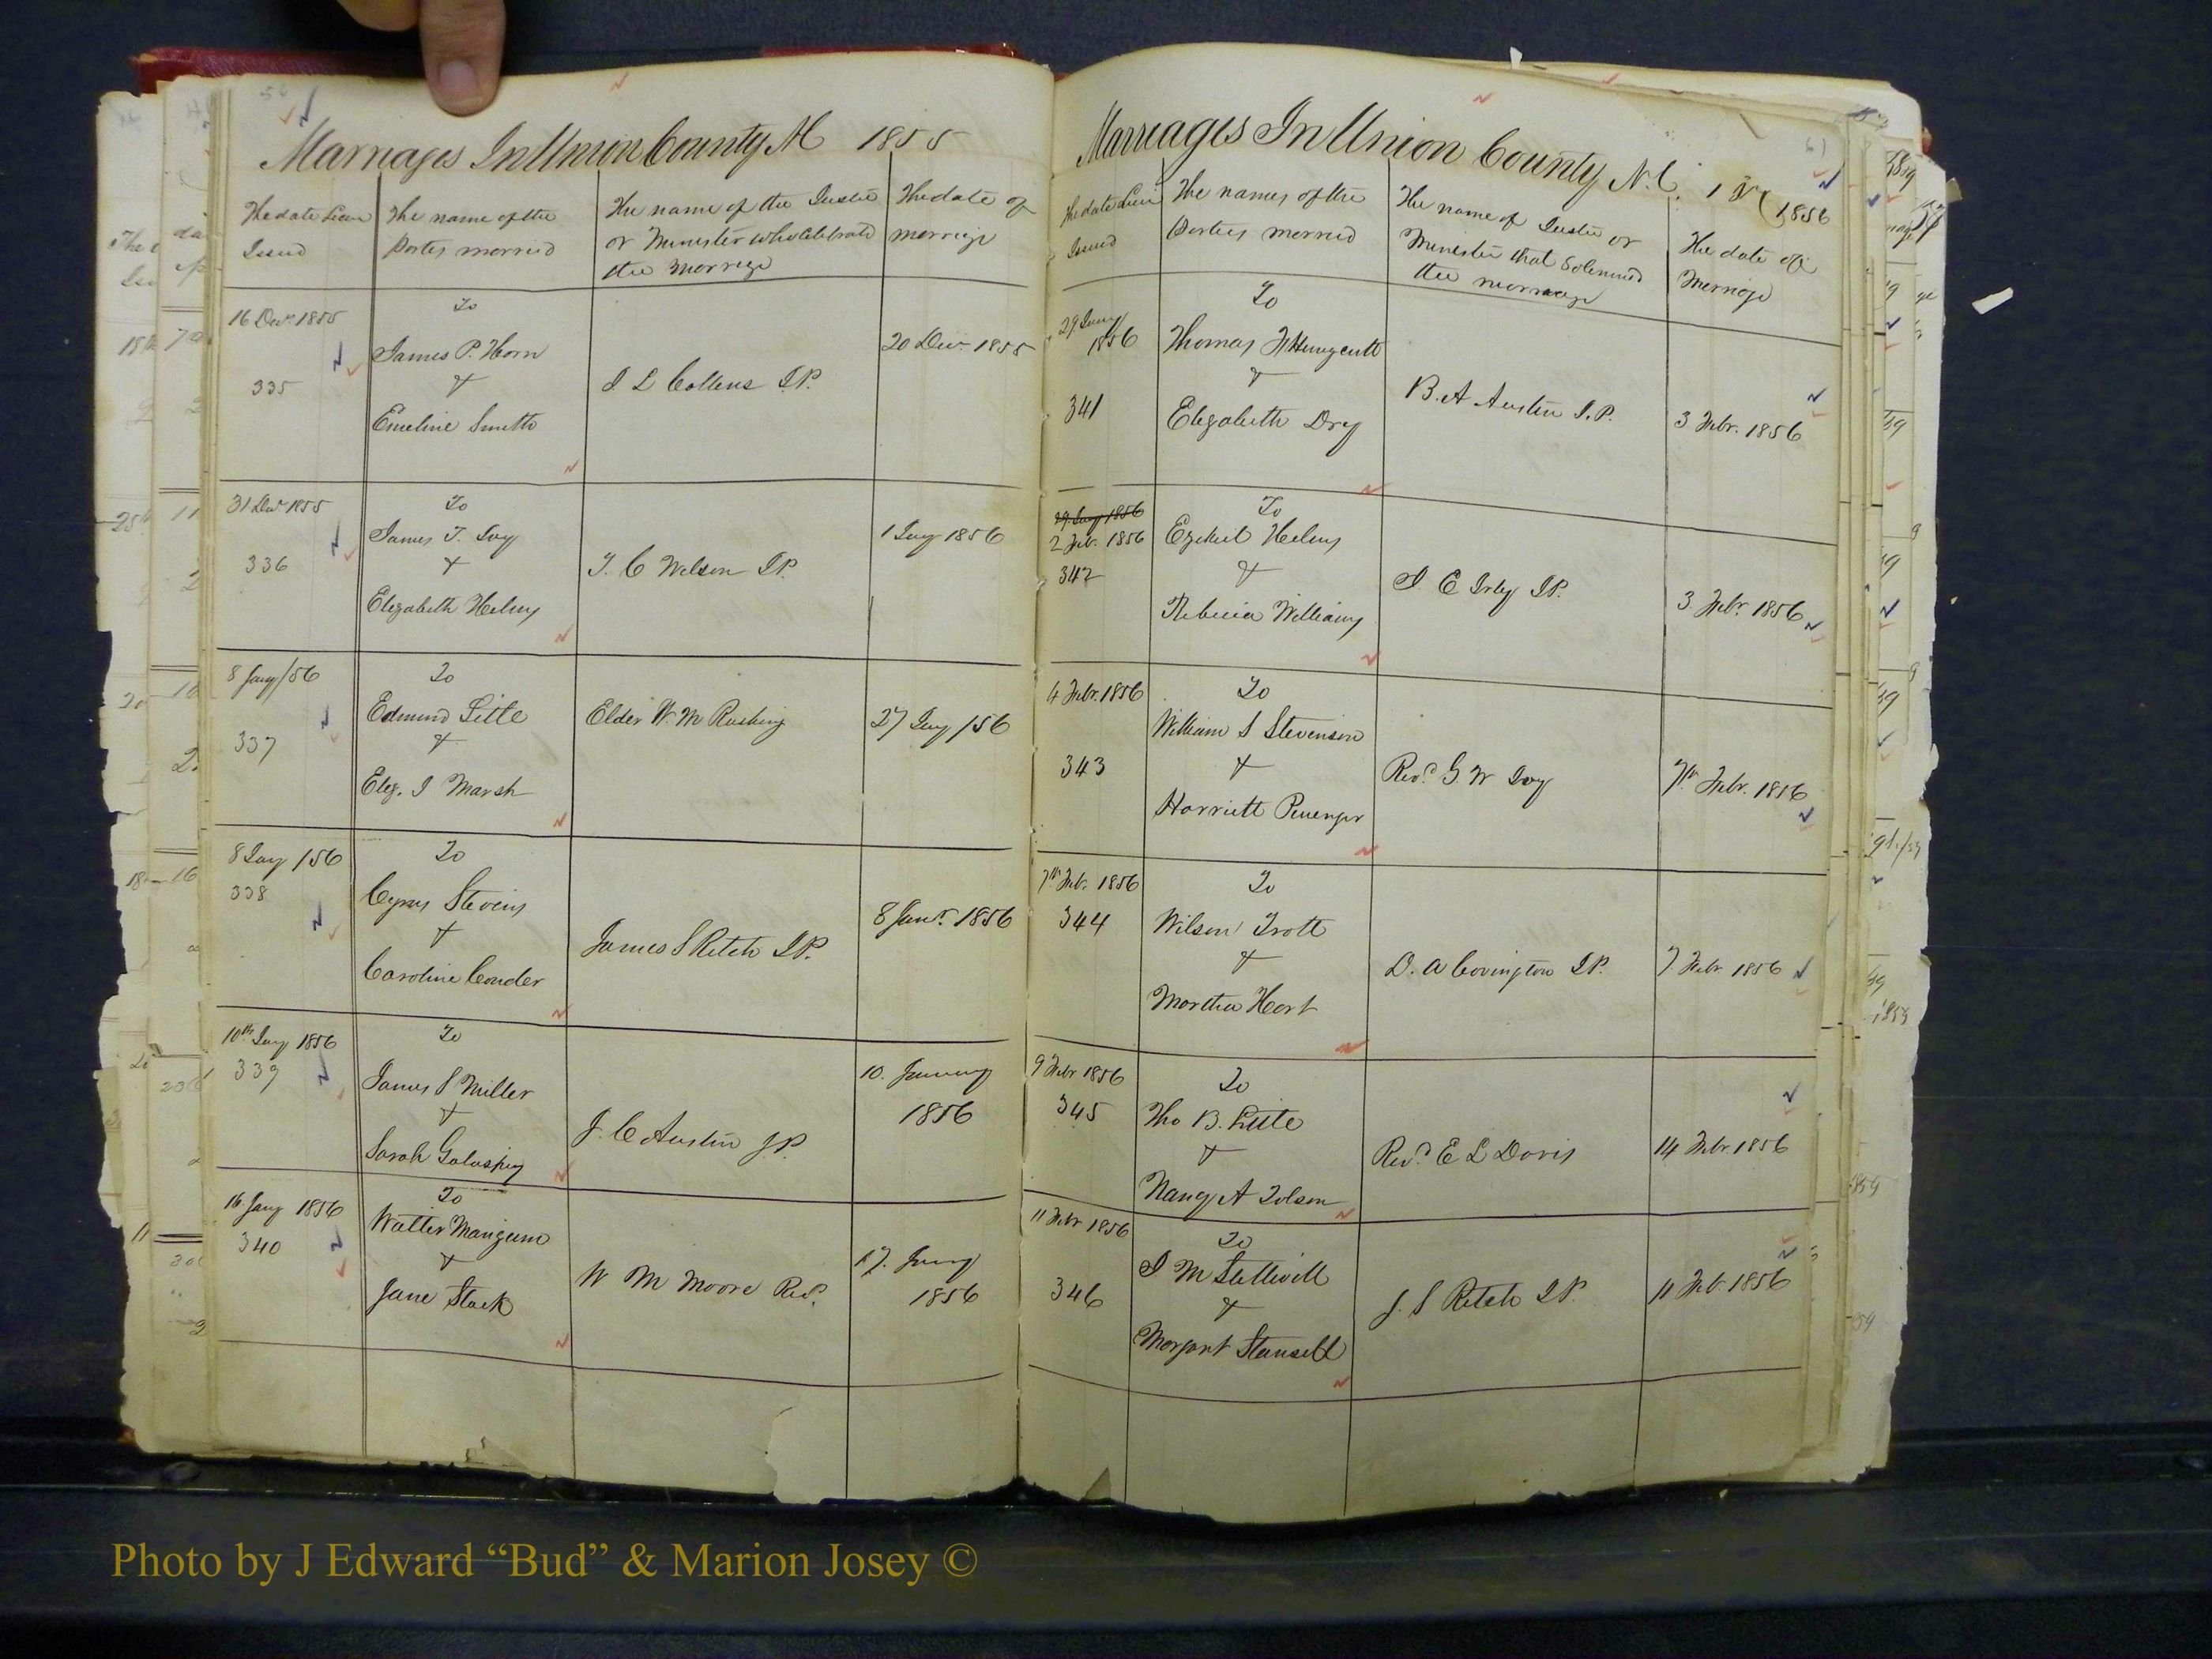 Marriages In Union County NC 1855
The date Licen
Issued
The name of the
Parties married
The name of the Justice
or Minister who Celebrated
the Marriage
The date of
marriage
16 Decr 1855
335
To
James P. Horn
&
Emeline Smith
J L Collins J.P.
20 Decr 1855
31 Decr 1855
336
To
James T. Ivy
&
Elizabeth Helms
T. C Wilson J.P.
1 Jany 1856
8 Jany/56
337
To
Edmund Little
&
Eliz. J Marsh
Elder W. M Rushing
27 Jany/56
8 Jany/56
338
To
Cyrus Stevens
&
Caroline Conder
James S Ritch J.P.
8 Janr. 1856
10th Jany 1856
339
To
James S Miller
&
Sarah
J. C Austin J.P.
10. January
1856
16 Jany 1856
340
To
Walter Mangum
&
Jane Stack
W M Moore Revd.
17. Jany
1856
Marriages In Union County N.C. 1856
The date Licen
Issued
The names of the
Parties married
The name of Justice or
Minister that Solemnised
the marriage
The date of
Marriage
29 Jany
1856
341
To
Thomas
&
Elizabeth Dry
B. A Austin J.P.
3 Febr. 1856
29 Jany 1856
2 Feb. 1856
342
To
Ezekiel Helms
&
Rebecca Williams
J. E Irby J.P.
3. Febr. 1856
4 Febr. 1856
343
To
William S Stevenson
&
Harriett
Revd. G. W Ivy
7th Febr. 1856
7th Feb. 1856
344
To
Wilson Trott
&
Martha Hart
D. A Covington J.P.
7 Febr 1856
9 Febr 1856
345
To
Tho B. Little
&
Nancy A Tolson
Revd. E L Davis
14 Febr 1856
11 Febr 1856
346
To
J M Stillwell
&
Margart Stansell
J. S Ritch J.P.
11 Feb. 1856
Photo by J Edward “Bud” & Marion Josey ©